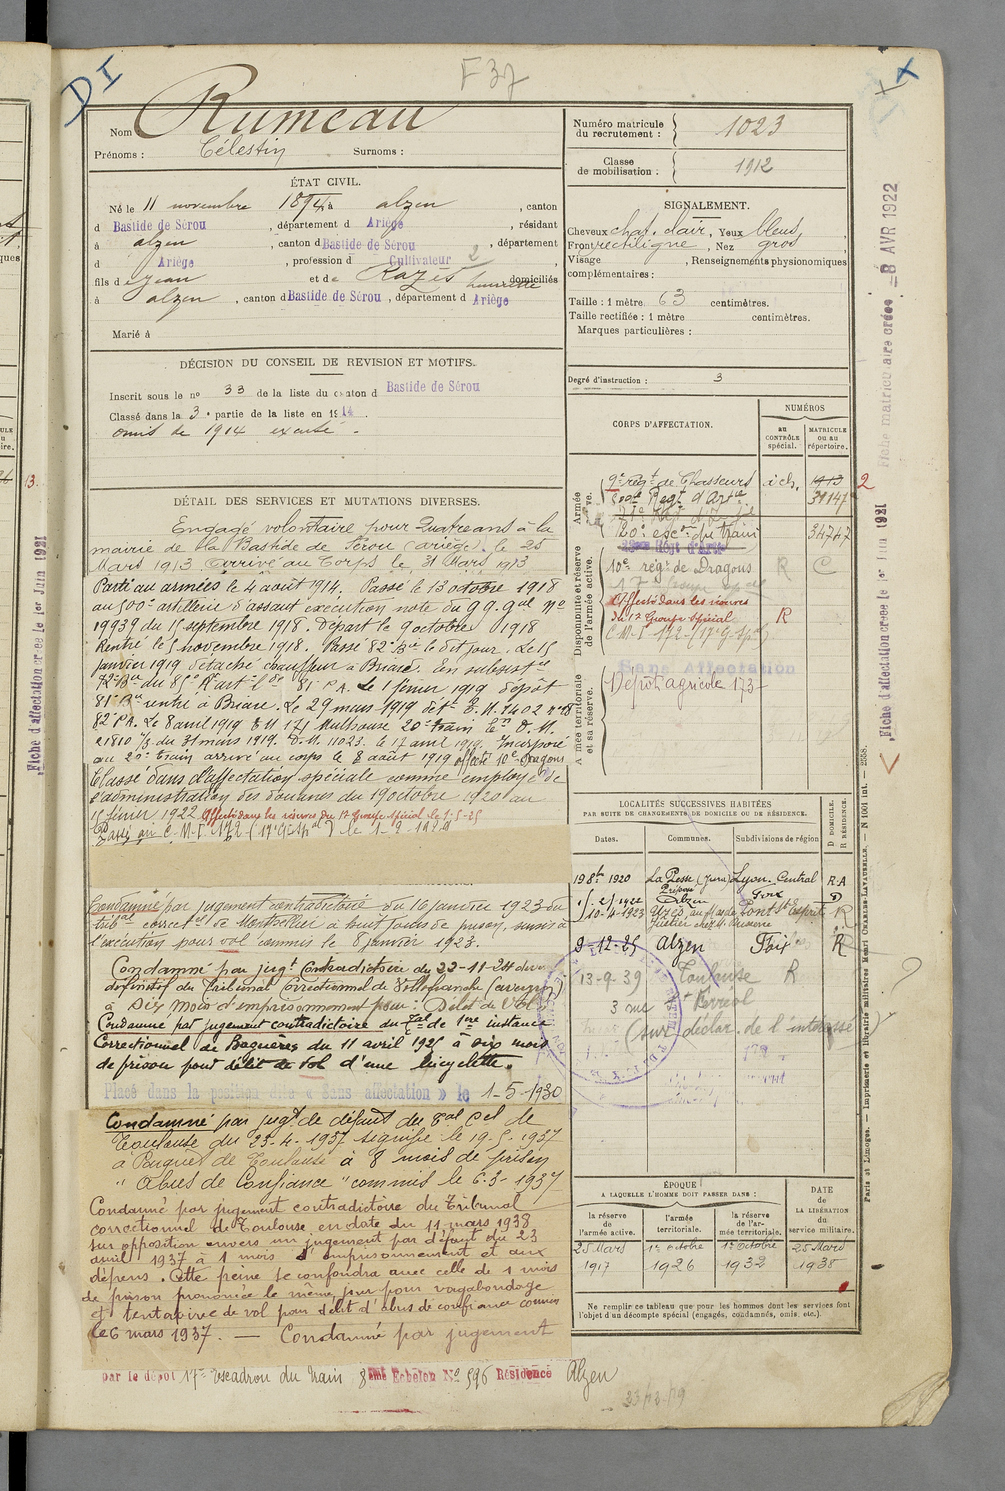 DI
F 37
Nom Rumeau
Prénoms : Célestin Surnoms :
ÉTAT CIVIL.
Né le 11 novembre 1894, à alzen , canton
d Bastide de Sérou , département d Ariège , résidant
à alzen , canton d Bastide de Sérou , département
d Ariège , profession d Cultivateur 2
fils de jean et de Razès henriette domiciliés
à alzen , canton d Bastide de Sérou , département d Ariège
Marié à
DÉCISION DU CONSEIL DE REVISION ET MOTIFS.
Inscrit sous le no 33 de la liste du canton d Bastide de Sérou
Classé dans la 3e partie de la liste en 1914.
omis de 1914 excusé.
DÉTAIL DES SERVICES ET MUTATIONS DIVERSES.
Engagé volontaire pour Quatre ans à la
mairie de la Bastide de Sérou (ariège), le 25
Mars 1913. arrivé au Corps le 31 Mars 1913
Parti au armées le 4 août 1914. Passé le 13 octobre 1918
au 500e artillerie d'assaut execution note du G.Q.Gal No
19939 du 15 septembre 1918. Départ le 9 octobre 1918
Rentré le 5 novembre 1918. Passé 82e Bie le dit jour. Le 15
janvier 1919 détaché chauffeur à Briare. En subsistce
72e Bie du 85e Rt art. Lde 81e P.A. Le 1 février 1919 dépôt
81e Bie rentré à Briare. Le 29 mars 1919
82e P.A. Le 8 avril 1919 T.M. 171 Mulhouse 20e train
21810 1/3 du 31 mars 1919. D.M. 11023. le 17 avril 1919. Incorporé
au 20e train arrivé au corps le 8 août 1919 affecté 10e Dragons
Classé dans l'affectation spéciale comme employé de
l'administration des douanes du 19 octobre 1920 au
15 février 1922 Affecté dans les réserves du 17 Groupe spécial le 1-5-25
Passé au C.M.T. 172 (17e G. spal) le 1-9-1929
Condamné par jugement contradictoire du 16 janvier 1923 du
tribal correctel de Montpellier à huit jours de prison, sursis à
l'exécution pour vol commis le 8 janvier 1923.
Condamné par jugt Contradictoire du 22-11-24
définitif du Tribunal Correctionnel de Villefranche (aveyron)
à Dix Mois d'emprisonnement pour : Délit de Vol.
Condamné par jugement contradictoire du Tal de 1ère instance
Correctionnel de Bagnères du 11 avril 1925 à six mois
de prison pour délit de vol d'une bicyclette.
Placé dans la position dite « Sans affectation » le 1-5-1930
Condamné par jugt de défaut du Tal Cel de
Toulouse du 23-4-1937 signifié le 19-5-1937
à Parquet de Toulouse à 8 mois de prison
" Abus de Confiance " commis le 6-3-1937
Condamné par jugement contradictoire du Tribunal
correctionnel de Toulouse, en date du 11 mars 1938
sur opposition envers un jugement par défaut du 23
avril 1937 à 1 mois d'emprisonnement et aux
dépens. Cette peine se confondra avec celle de 1 mois
de prison prononcée le même jour pour vagabondage
et tentative de vol pour délit d'abus de confiance commis
le 6 mars 1937. — Condamné par jugement
par le dépôt 17e Escadron du train 8ème Echelon No 596 Résidence Alzen
23/12/19
Numéro matricule du recrutement : 1023
Classe de mobilisation : 1912
SIGNALEMENT.
Cheveux chat. clair, Yeux bleus,
Front rectiligne , Nez gros
Visage , Renseignements physionomiques
complémentaires :
Taille : 1 mètre 63 centimètres.
Taille rectifiée : 1 mètre centimètres.
Marques particulières :
Degré d'instruction : 3
CORPS D'AFFECTATION.
NUMÉROS
au CONTRÔLE spécial.
MATRICULE ou au répertoire.
Armée active.
9e régt de Chasseurs à ch. 1913
500e Regt d'Artie 31147
120e escon du train 34747
Disponibilité et réserve de l'armée active.
10e régt de Dragons R C
Affecté dans les réserves
du 17 Groupe spécial R
C.M.T. 172 (17e G. Spal)
Sans Affectation
Armée territoriale et sa réserve.
Dépôt agricole 173
LOCALITÉS SUCCESSIVES HABITÉES
PAR SUITE DE CHANGEMENTS DE DOMICILE OU DE RÉSIDENCE.
Dates. Communes. Subdivisions de région D DOMICILE. R RÉSIDENCE.
19 8bre 1920 La Pesse (Jura) Lyon-Central R-A
Alzen Foix D
10-4-1923 Uzès Pont St Esprit R
9-12-25 Alzen Foix R
13-9-39 Toulouse R
3 rue St Ferréol
(sur déclar. de l'intéressé)
ÉPOQUE
A LAQUELLE L'HOMME DOIT PASSER DANS :
la réserve de l'armée active.
l'armée territoriale.
la réserve de l'armée territoriale.
DATE de LA LIBÉRATION du service militaire.
25 Mars 1er octobre 1er octobre 25 Mars
1917 1926 1932 1938
Ne remplir ce tableau que pour les hommes dont les services font
l'objet d'un décompte spécial (engagés, condamnés, omis, etc.).
Fiche matriculaire créée 8 AVR 1922
Fiche d'affectation créée le 1er Juin 1921
Paris et Limoges. — Imprimerie et librairie militaires Henri CHARLES-LAVAUZELLE. — N 1001 int. — 2558.
Fiche d'affectation créée le 1er Juin 1921
13.
2